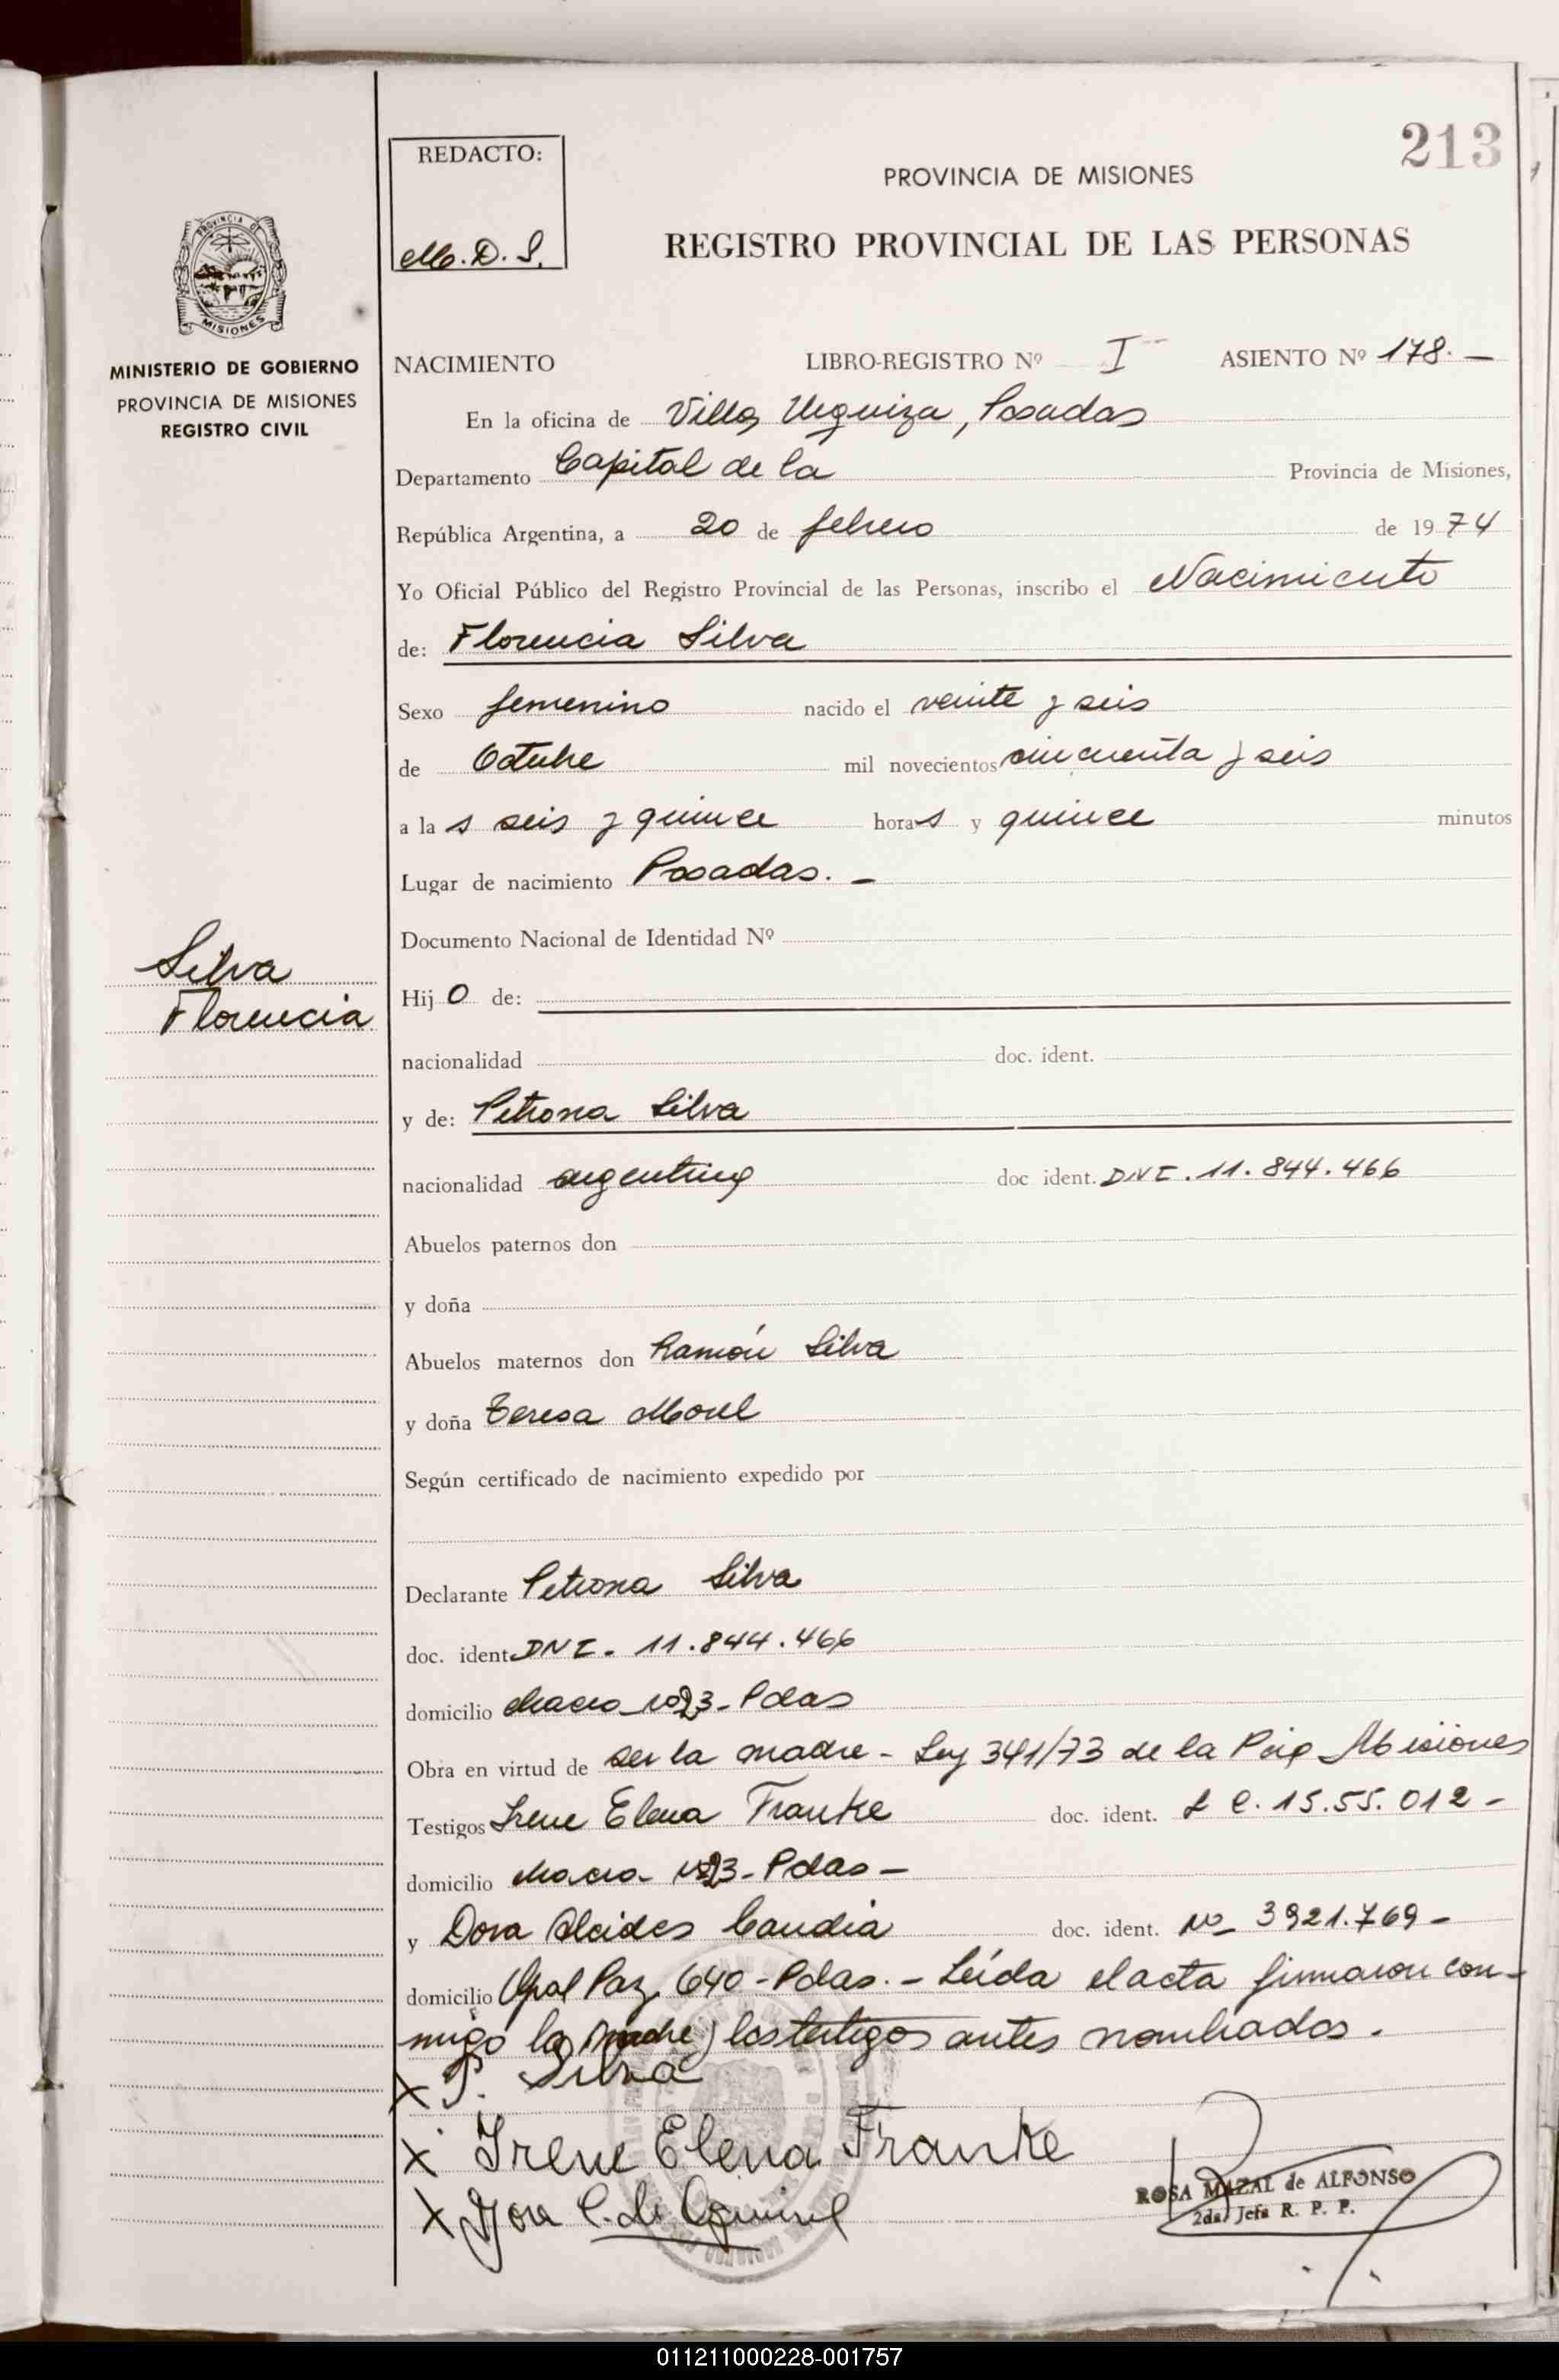 213
REDACTO:
M. D. S.
PROVINCIA DE MISIONES
REGISTRO PROVINCIAL DE LAS PERSONAS
MISIONES
MINISTERIO DE GOBIERNO
PROVINCIA DE MISIONES
REGISTRO CIVIL
NACIMIENTO LIBRO-REGISTRO Nº I ASIENTO Nº 178.—
En la oficina de Villa Urquiza, Posadas
Departamento Capital de la Provincia de Misiones,
República Argentina, a 20 de febrero de 1974
Yo Oficial Público del Registro Provincial de las Personas, inscribo el Nacimiento
de: Florencia Silva
Sexo femenino nacido el veinte y seis
de Octubre mil novecientos cincuenta y seis
a la s seis y quince hora s y quince minutos
Lugar de nacimiento Posadas. -
Documento Nacional de Identidad Nº
Silva
Florencia
Hij o de:
nacionalidad doc. ident.
y de: Petrona Silva
nacionalidad argentina doc ident. DNI. 11.844.466
Abuelos paternos don
y doña
Abuelos maternos don Ramón Silva
y doña Teresa Morel
Según certificado de nacimiento expedido por
Declarante Petrona Silva
doc. ident. DNI. 11.844.466
domicilio Chacra - Pdas
Obra en virtud de ser la madre - Ley 341/73 de la Pcia Misiones
Testigos Irene Elena Franke doc. ident. L C. 15.55.012-
domicilio Chacra - Pdas -
y Dora Alcides Candia doc. ident. Nº 3921.769-
domicilio Gral Paz 640 - Pdas. - Leída el acta firmaron con-
migo la madre y los testigos antes nombrados.
x P. Silva
x Irene Elena Franke
x Dora C. de
ROSA MAZAL de ALFONSO
2da. Jefa R. P. P.
011211000228-001757